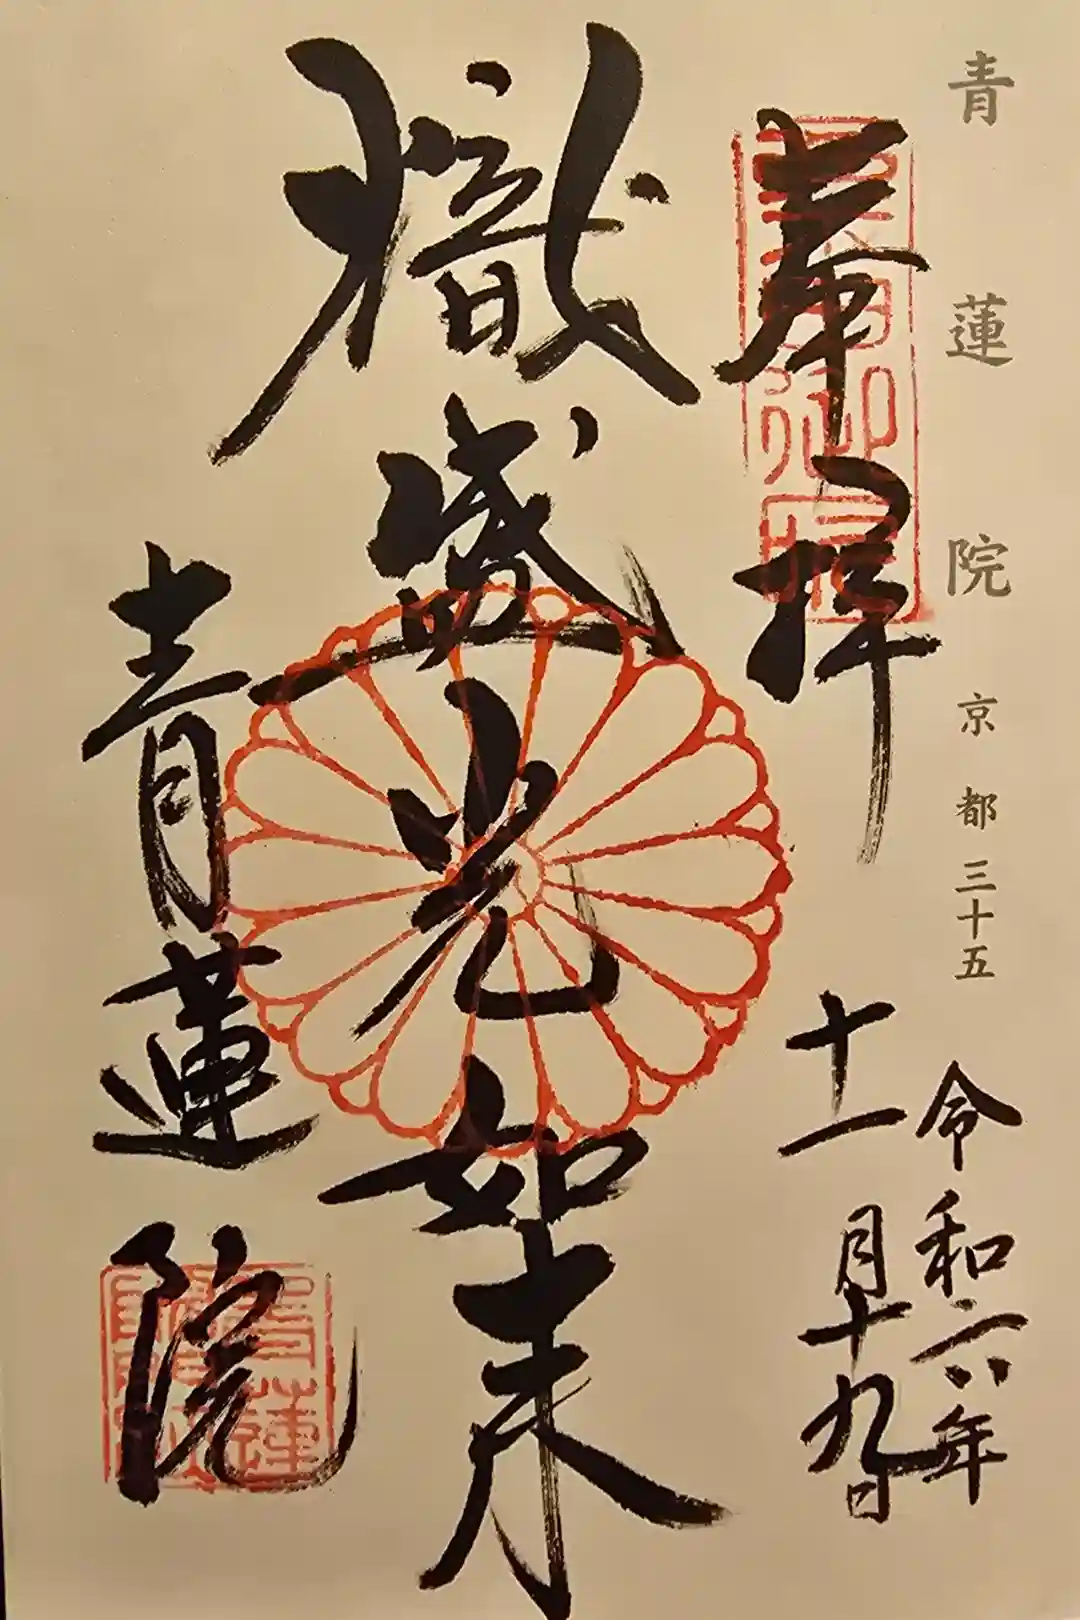 青蓮院
京都三十五
令和六年
十一月十九日
奉拝
熾盛光如来
青蓮院